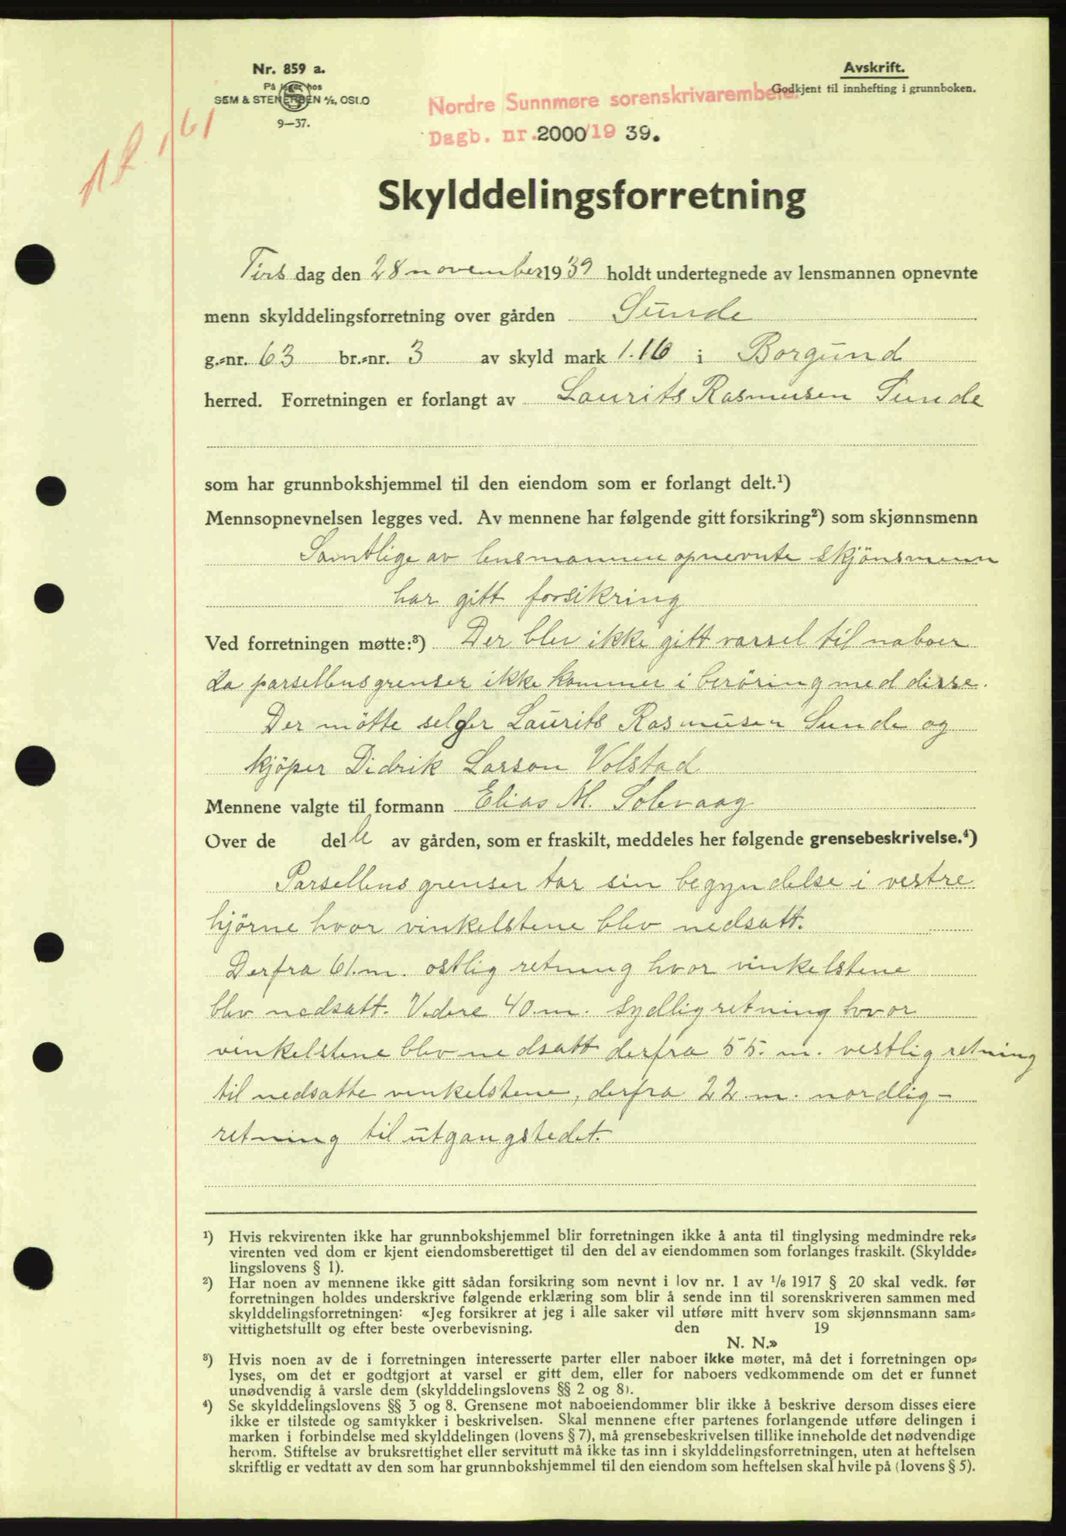 Nr. 859 a.
På lager hos
SEM & STENERSEN A/S, OSLO
9—37.
Avskrift.
Godkjent til innhefting i grunnboken.
Nordre Sunnmøre sorenskrivarembete.
Dagb. nr. 2000/19 39.
Skylddelingsforretning
Tirsdag den 28 november 1939 holdt undertegnede av lensmannen opnevnte
menn skylddelingsforretning over gården Sunde
g.-nr. 63 br.-nr. 3 av skyld mark 1.16 i Borgund
herred. Forretningen er forlangt av Laurits Rasmusen Sunde
som har grunnbokshjemmel til den eiendom som er forlangt delt.¹)
Mennsopnevnelsen legges ved. Av mennene har følgende gitt forsikring²) som skjønnsmenn
Samtlige av lensmannen opnevnte skjönsmenn
har gitt forsikring
Ved forretningen møtte:³) Der blev ikke gitt varsel til naboer
da parsellens grenser ikke kommer i beröring med disse.
Der mötte selger Laurits Rasmusen Sunde og
kjöper Didrik Larson Volstad
Mennene valgte til formann Elias M. Solevaag
Over de delle av gården, som er fraskilt, meddeles her følgende grensebeskrivelse.⁴)
Parsellens grenser tar sin begyndelse i vestre
hjörne hvor vinkelstene blev nedsatt.
Derfra 61. m. ostlig retning hvor vinkelstene
blev nedsatt. Videre 40. m. sydlig retning hvor
vinkelstene blev nedsatt derfra 55. m. vestlig retning
til nedsatte vinkelstene, derfra 22. m. nordlig-
retning til utgangstedet.
¹) Hvis rekvirenten ikke har grunnbokshjemmel blir forretningen ikke å anta til tinglysing medmindre rek-
virenten ved dom er kjent eiendomsberettiget til den del av eiendommen som forlanges fraskilt. (Skyldde-
lingslovens § 1).
²) Har noen av mennene ikke gitt sådan forsikring som nevnt i lov nr. 1 av 1/6 1917 § 20 skal vedk. før
forretningen holdes underskrive følgende erklæring som blir å sende inn til sorenskriveren sammen med
skylddelingsforretningen: «Jeg forsikrer at jeg i alle saker vil utføre mitt hverv som skjønnsmann sam-
vittighetsfullt og efter beste overbevisning. den 19
N. N.»
³) Hvis noen av de i forretningen interesserte parter eller naboer ikke møter, må det i forretningen op-
lyses, om det er godtgjort at varsel er gitt dem, eller for naboers vedkommende om det er funnet
unødvendig å varsle dem (skylddelingslovens §§ 2 og 8).
⁴) Se skylddelingslovens §§ 3 og 8. Grensene mot naboeiendommer blir ikke å beskrive dersom disses eiere
ikke er tilstede og samtykker i beskrivelsen. Skal mennene efter partenes forlangende utføre delingen i
marken i forbindelse med skylddelingen (lovens § 7), må grensebeskrivelsen tillike inneholde det nødvendige
herom. Stiftelse av bruksrettighet eller servitutt må ikke tas inn i skylddelingsforretningen, uten at heftelsen
skriftlig er vedtatt av den som har grunnbokshjemmel til den eiendom som heftelsen skal hvile på (lovens § 5).